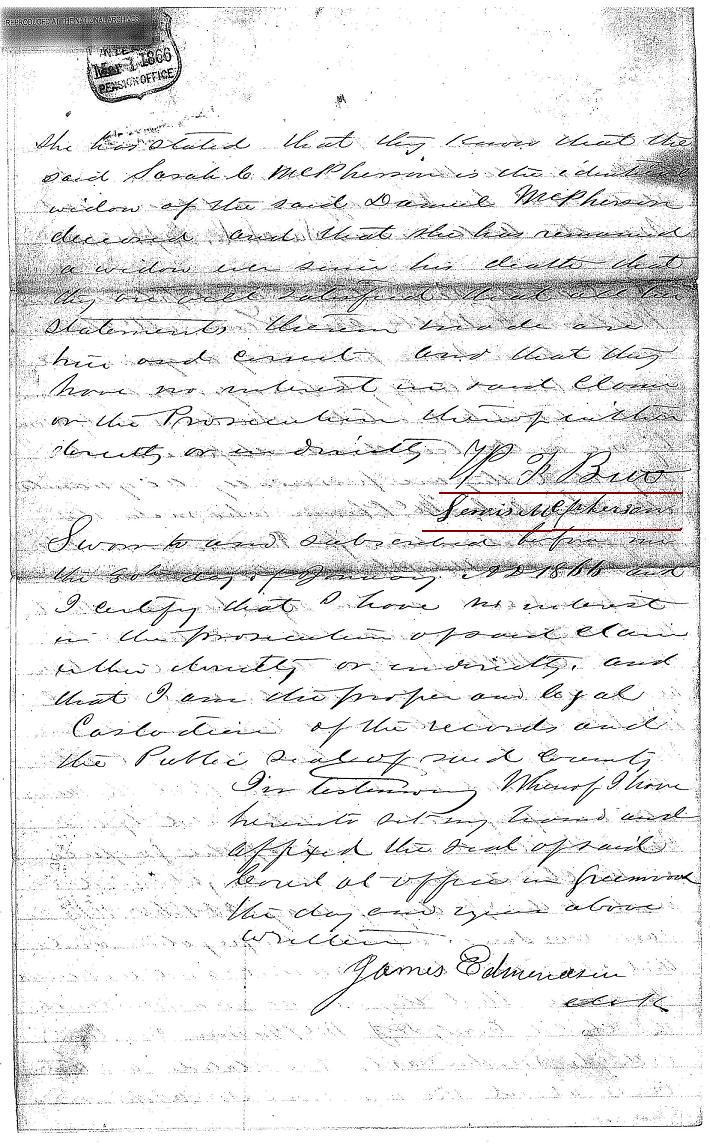 REPRODUCED AT THE NATIONAL ARCHIVES
Mar 1 1866
PENSION OFFICE
She has stated that they Know that the
said Sarah C McPherson is the identical
widow of the said Daniel McPherson
deceased, and that she has remained
a widow ever since his death that
they are well satisfied that all her
statements therein made are
true and correct and that they
have no interest in said Claim
or the Prosecution thereof either
directly or indirectly
W F
Lewis McPherson
Sworn to and subscribed before me
the 30th day of January AD 1866 and
I certify that I have no interest
in the prosecution of said Claim
either directly or indirectly. and
that I am the proper and legal
Custodian of the records and
the Public seal of said County
In testimony Whereof I have
hereunto set my hand and
affixed the seal of said
Court at office in Greenwood
the day and year above
written
James Edmondson
clerk